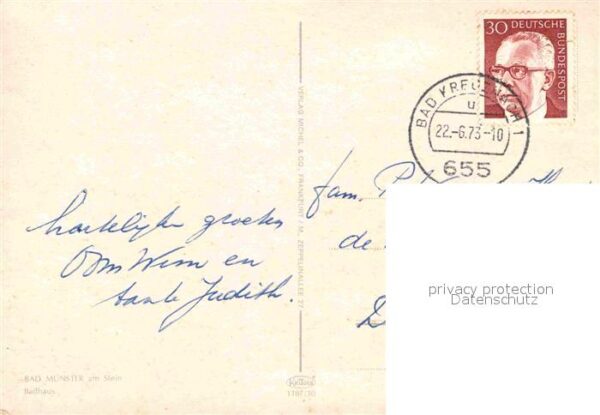 30 DEUTSCHE
BUNDESPOST
BAD KREUZNACH 1
u
22.-6.73-10
655
VERLAG MICHEL & CO., FRANKFURT / M., ZEPPELINALLEE 27
fam. P
de
hartelijke groeten
Oom Wim en
tante Judith.
privacy protection
Datenschutz
BAD MÜNSTER am Stein
Badhaus
1187/30